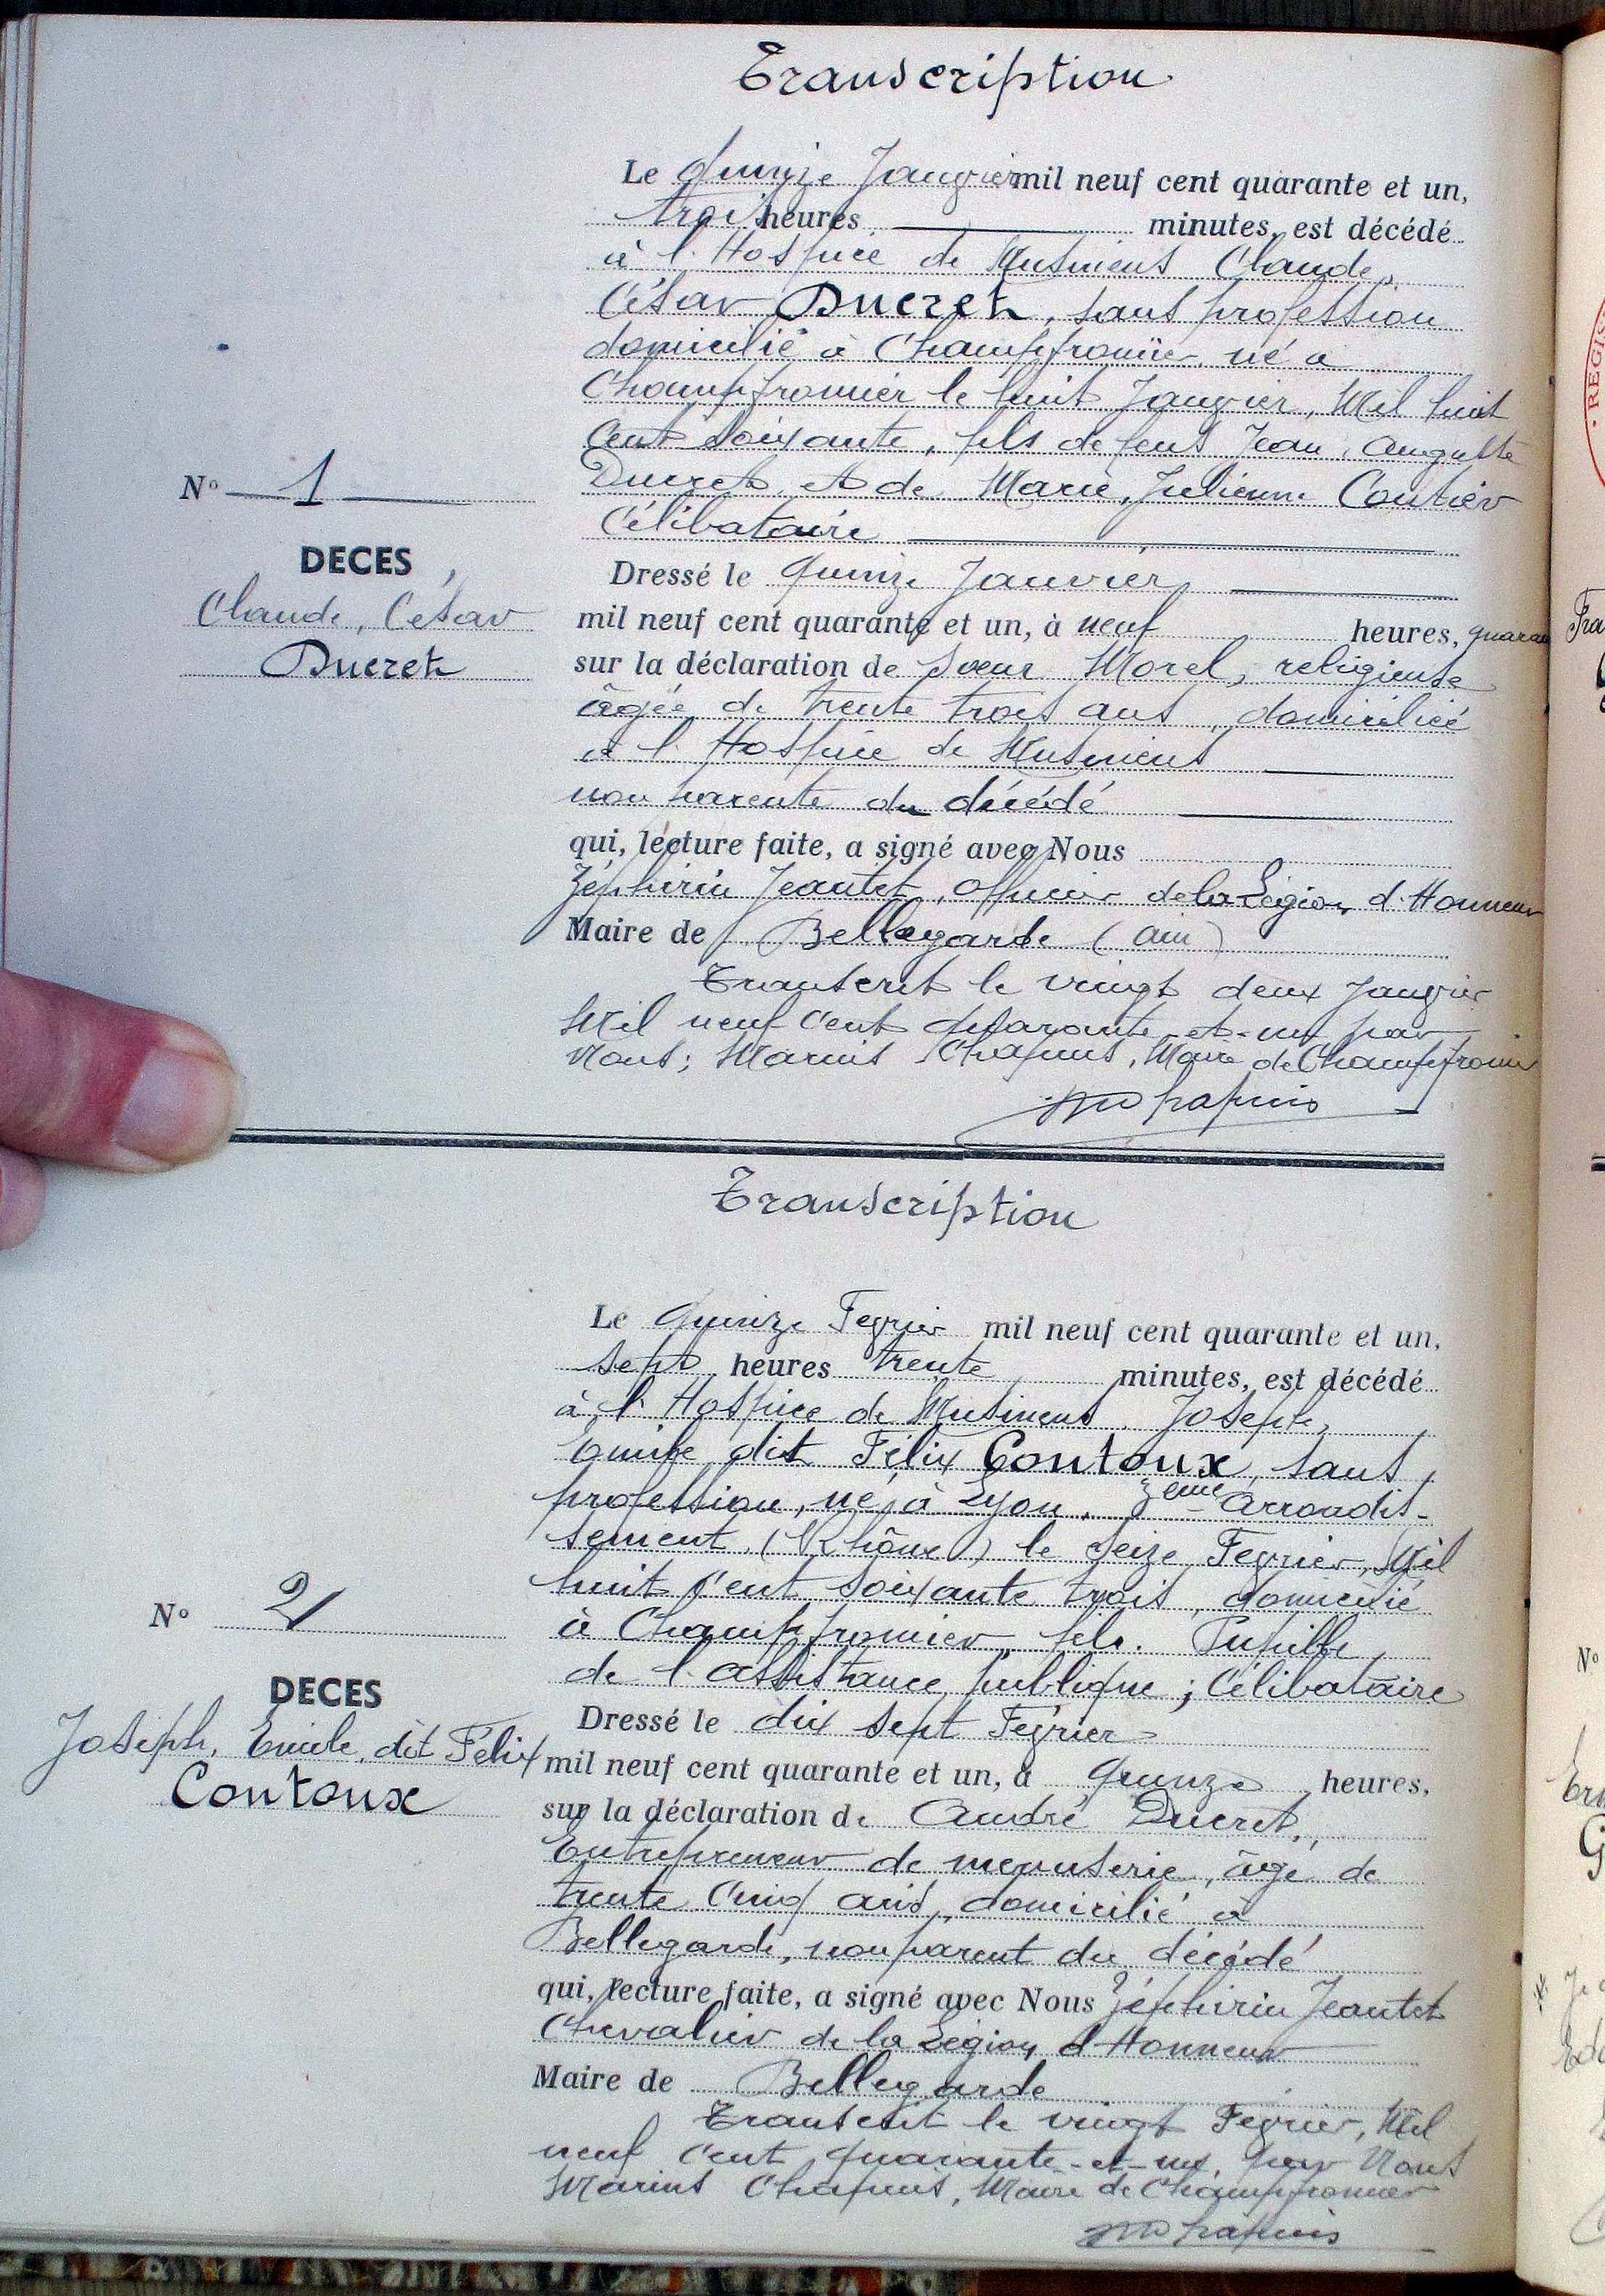 Transcription
Le quinze Janvier mil neuf cent quarante et un,
trois heures minutes, est décédé
à l'Hospice de Musinens Claude,
César Ducret, sans profession
domicilié à Champfromier, né à
Champfromier le huit Janvier, Mil huit
cent soixante, fils de feus Jean, Auguste
Ducret, et de Marie, Julienne Coutier
Célibataire
N° 1
DECES
Claude, César
Ducret
Dressé le quinze Janvier
mil neuf cent quarante et un, à neuf heures, quaran
sur la déclaration de Soeur Morel, religieuse
âgée de trente trois ans, domiciliée
à l'Hospice de Musinens
non parente du décédé
qui, lecture faite, a signé avec Nous
Zéphirin Jeantet, Officier de la Légion d'Honneur
Maire de Bellegarde (Ain)
Transcrit le vingt deux Janvier
Mil neuf cent quarante-et-un par
Nous; Marius Chapuis, Maire de Champfromier
M Chapuis
Transcription
Le quinze Fevrier mil neuf cent quarante et un,
sept heures trente minutes, est décédé
à l'Hospice de Musinens, Joseph,
Emile dit Félix Contoux, sans
profession, né à Lyon, 3eme Arrondis-
sement, (Rhône) le seize Fevrier, Mil
huit cent soixante trois, domicilié
à Champfromier, fils. Pupille
de l'assistance publique; Célibataire
N° 2
DECES
Joseph, Emile, dit Félix
Contoux
Dressé le dix sept Fevrier
mil neuf cent quarante et un, à quinze heures,
sur la déclaration de André Ducret,
Entrepreneur de menuiserie, âgé de
trente cinq ans, domicilié à
Bellegarde, non parent du décédé
qui, lecture faite, a signé avec Nous Zéphirin Jeantet
Chevalier de la Légion d'Honneur
Maire de Bellegarde
Transcrit le vingt Fevrier, Mil
neuf cent quarante-et-un, par Nous
Marius Chapuis, Maire de Champfromier
M Chapuis